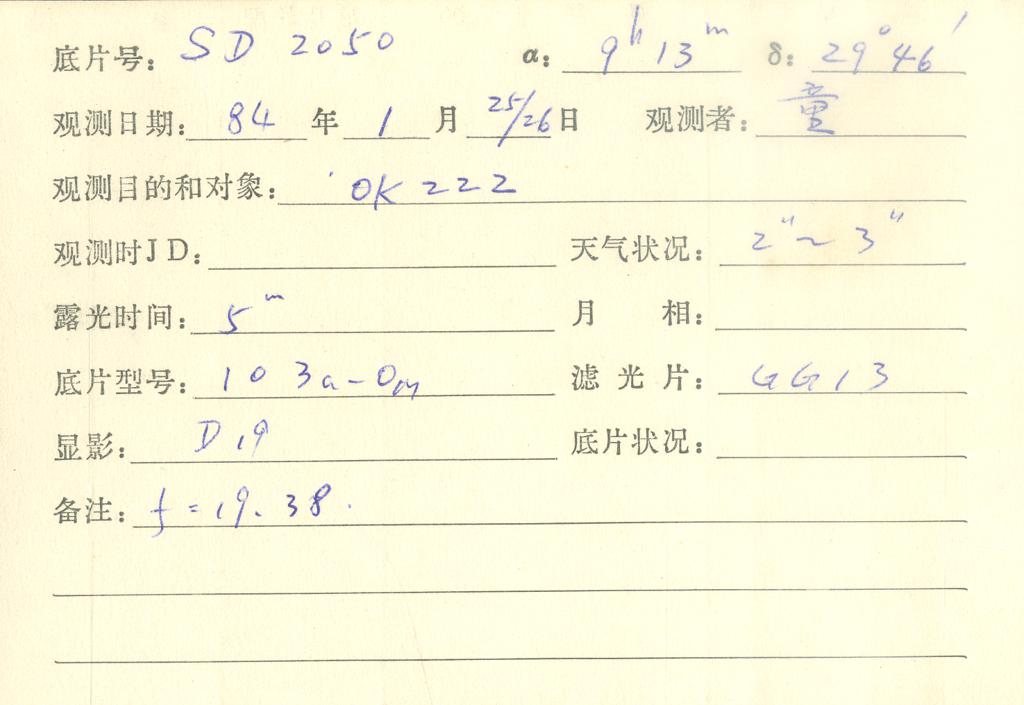 底片号: SD 2050 α: 9h 13m δ: 29°46′
观测日期: 84 年 1 月 25/26 日 观测者: 童
观测目的和对象: OK 222
观测时JD: 天气状况: 2"~3"
露光时间: 5m 月 相:
底片型号: 103a-O 滤光片: GG13
显影: D19 底片状况:
备注: f=19.38.